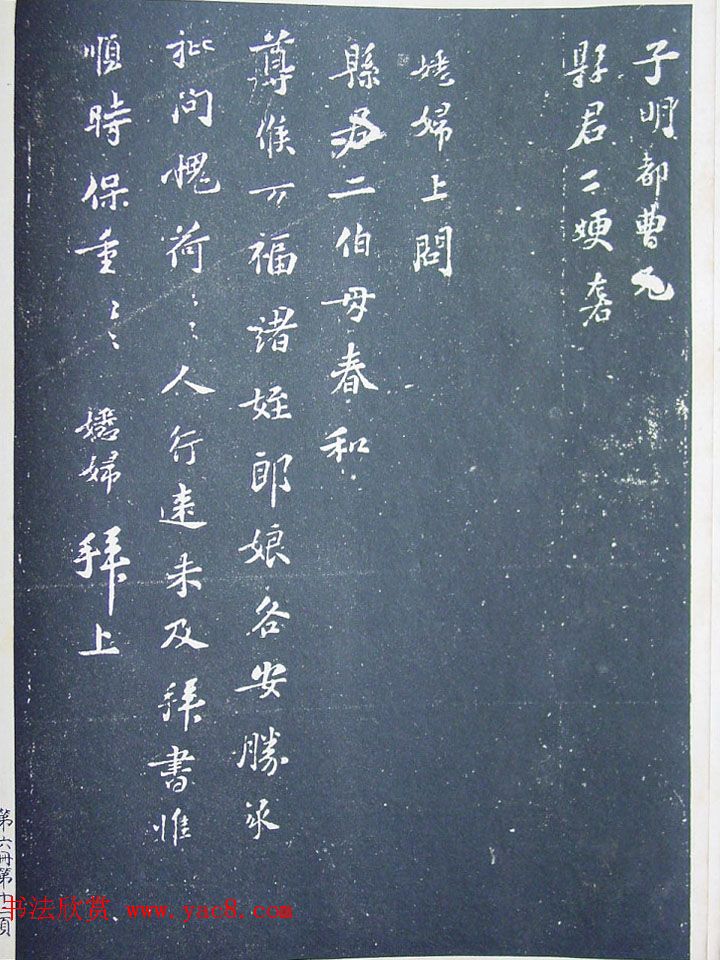 子明都曹兄
縣君二㛐 襲
嬌婦上問
縣君二伯母春和
尊候万福諸姪郎娘各安勝承
批問愧荷〻人行速未及拜書惟
順時保重〻〻嬌婦拜上
第六冊第十三頁
书法欣赏 www.yac8.com